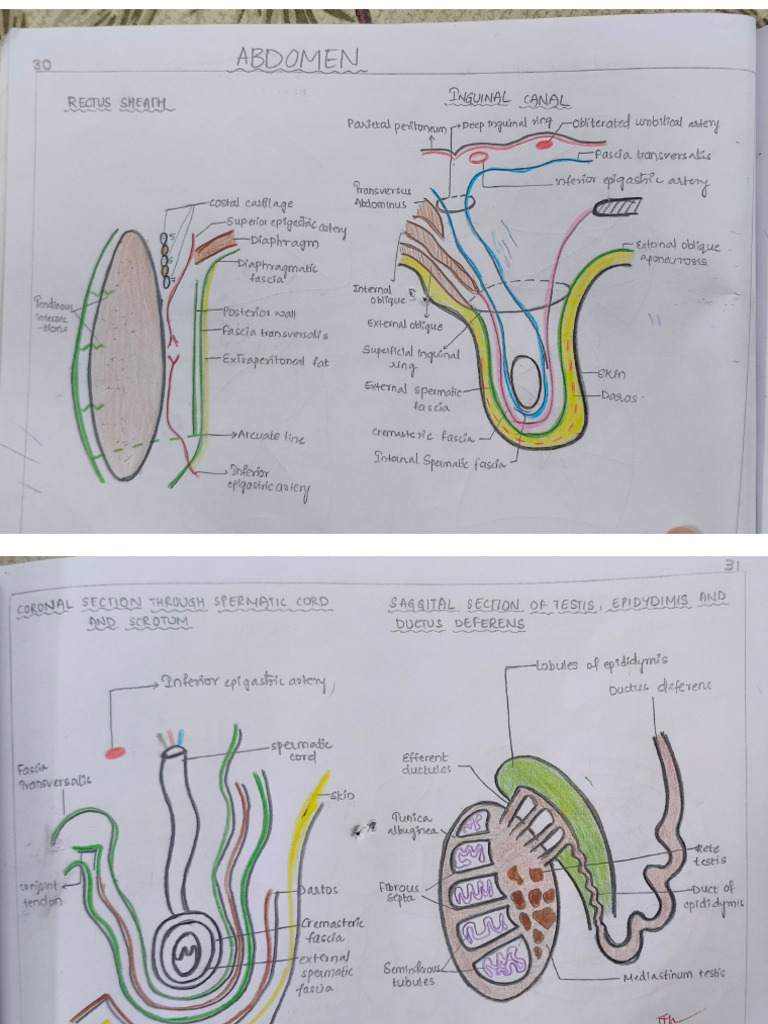 30
ABDOMEN
RECTUS SHEATH
INGUINAL CANAL
Parietal peritoneum
Deep inguinal ring
Obliterated umbilical artery
Fascia transversalis
Inferior epigastric artery
Transversus
Abdominus
costal cartilage
Superior epigastric artery
Diaphragm
Diaphragmatic
fascia
5
6
7
Tendinous
intersec
-tions
Posterior wall
Fascia transversalis
Extraperitoneal fat
Arcuate line
Inferior
epigastric artery
External oblique
aponeurosis
Internal
oblique
External oblique
Superficial inguinal
ring
External spermatic
fascia
cremasteric fascia
Internal Spermatic fascia
Skin
Dartos
31
CORONAL SECTION THROUGH SPERMATIC CORD
AND SCROTUM
SAGGITAL SECTION OF TESTIS, EPIDYDIMIS AND
DUCTUS DEFERENS
Inferior epigastric artery
spermatic
cord
Fascia
Transversalis
skin
conjoint
tendon
Dartos
Cremasteric
fascia
external
spermatic
fascia
Lobules of epididymis
Ductus deferens
Efferent
ductules
Tunica
albuginea
Fibrous
septa
Seminiferous
tubules
Rete
testis
Duct of
epididymis
Mediastinum testis